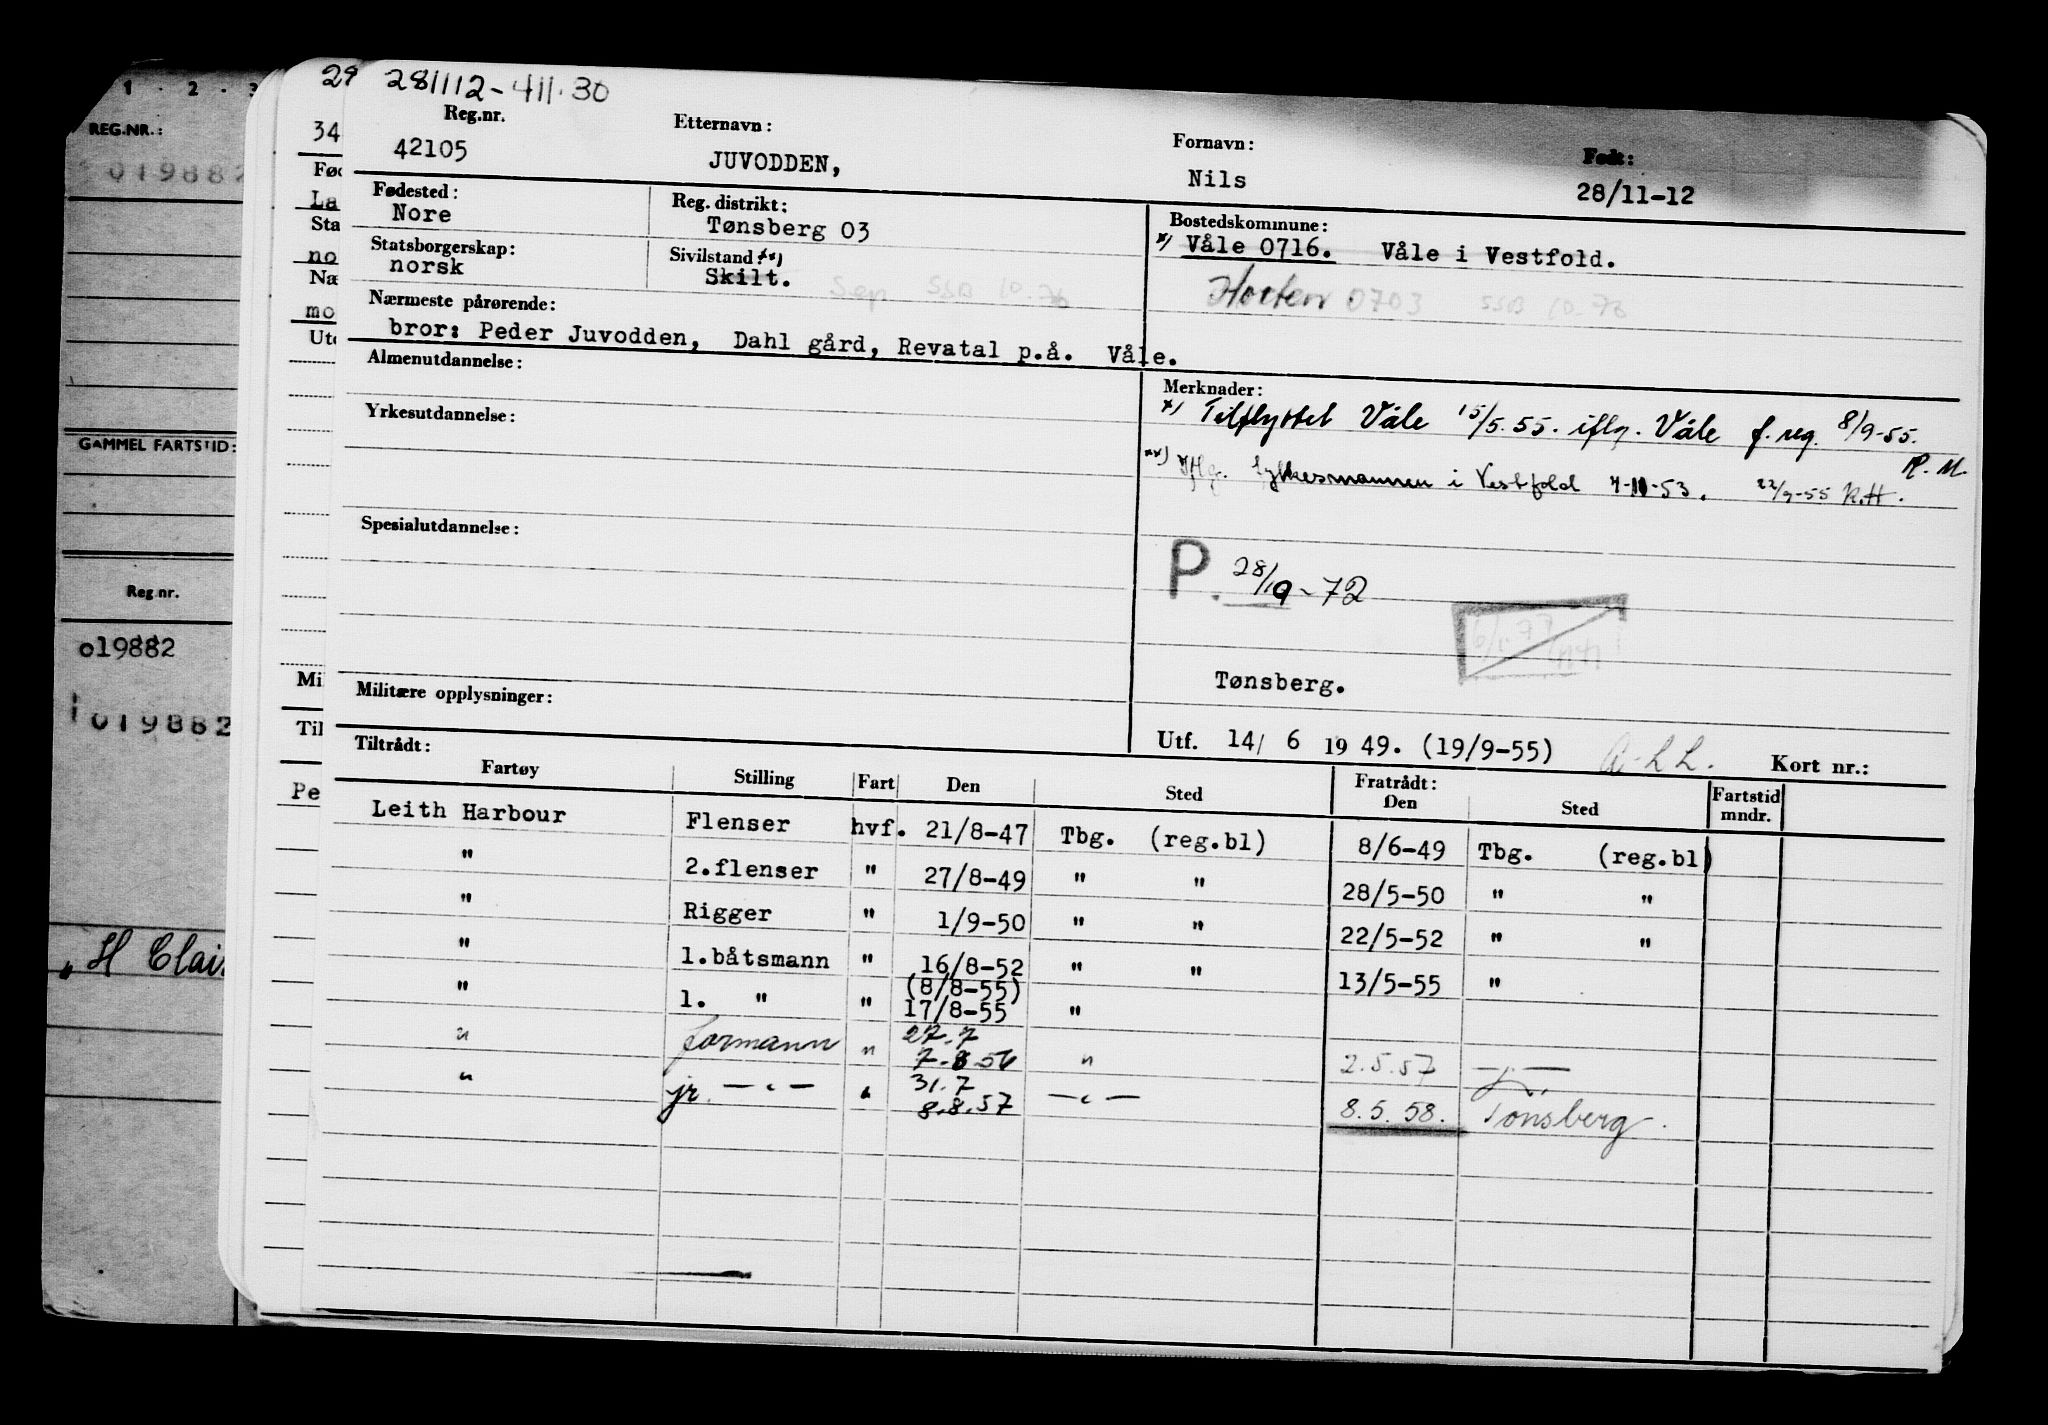 1 · 2 · 3
REG.NR.:
019882
GAMMEL FARTSTID:
Reg.nr.
019882
019882
"H Clai
29
34
Fød
La
Sta
no
Næ
mo
Utd
Mil
Til
Pe
281112-411.30
Reg.nr. Etternavn: Fornavn: Født:
42105 JUVODDEN, Nils 28/11-12
Fødested: Reg. distrikt: Bostedskommune:
Nore Tønsberg 03 x) Våle 0716. Våle i Vestfold.
Statsborgerskap: Sivilstand: xx)
norsk Skilt. Sep SSB 10.76 Horten 0703 SSB 10.76
Nærmeste pårørende:
bror: Peder Juvodden, Dahl gård, Revatal p.å. Våle.
Almenutdannelse: Merknader:
x) Tilflyttet Våle 15/5.55. iflg. Våle f.reg. 8/9-55.
R.M.
Yrkesutdannelse:
xx) Iflg. fylkesmannen i Vestfold 7-10-53. 22/9-55 K.H.
Spesialutdannelse:
P. 28/9-72
Tønsberg.
Militære opplysninger:
Utf. 14/ 6 1949. (19/9-55) Kort nr.:
Tiltrådt: Fratrådt:
Fartøy Stilling Fart Den Sted Den Sted Fartstid mndr.
Leith Harbour Flenser hvf. 21/8-47 Tbg. (reg.bl) 8/6-49 Tbg. (reg.bl)
" 2.flenser " 27/8-49 " " 28/5-50 " "
" Rigger " 1/9-50 " " 22/5-52 " "
" 1.båtsmann " 16/8-52 " " 13/5-55 "
(8/8-55)
" 1. " " 17/8-55 "
27.7
" formann " 7.8.56 " 2.5.57 — " —
31.7
" jr. — " — " 8.8.57 — " — 8.5.58. Tønsberg.